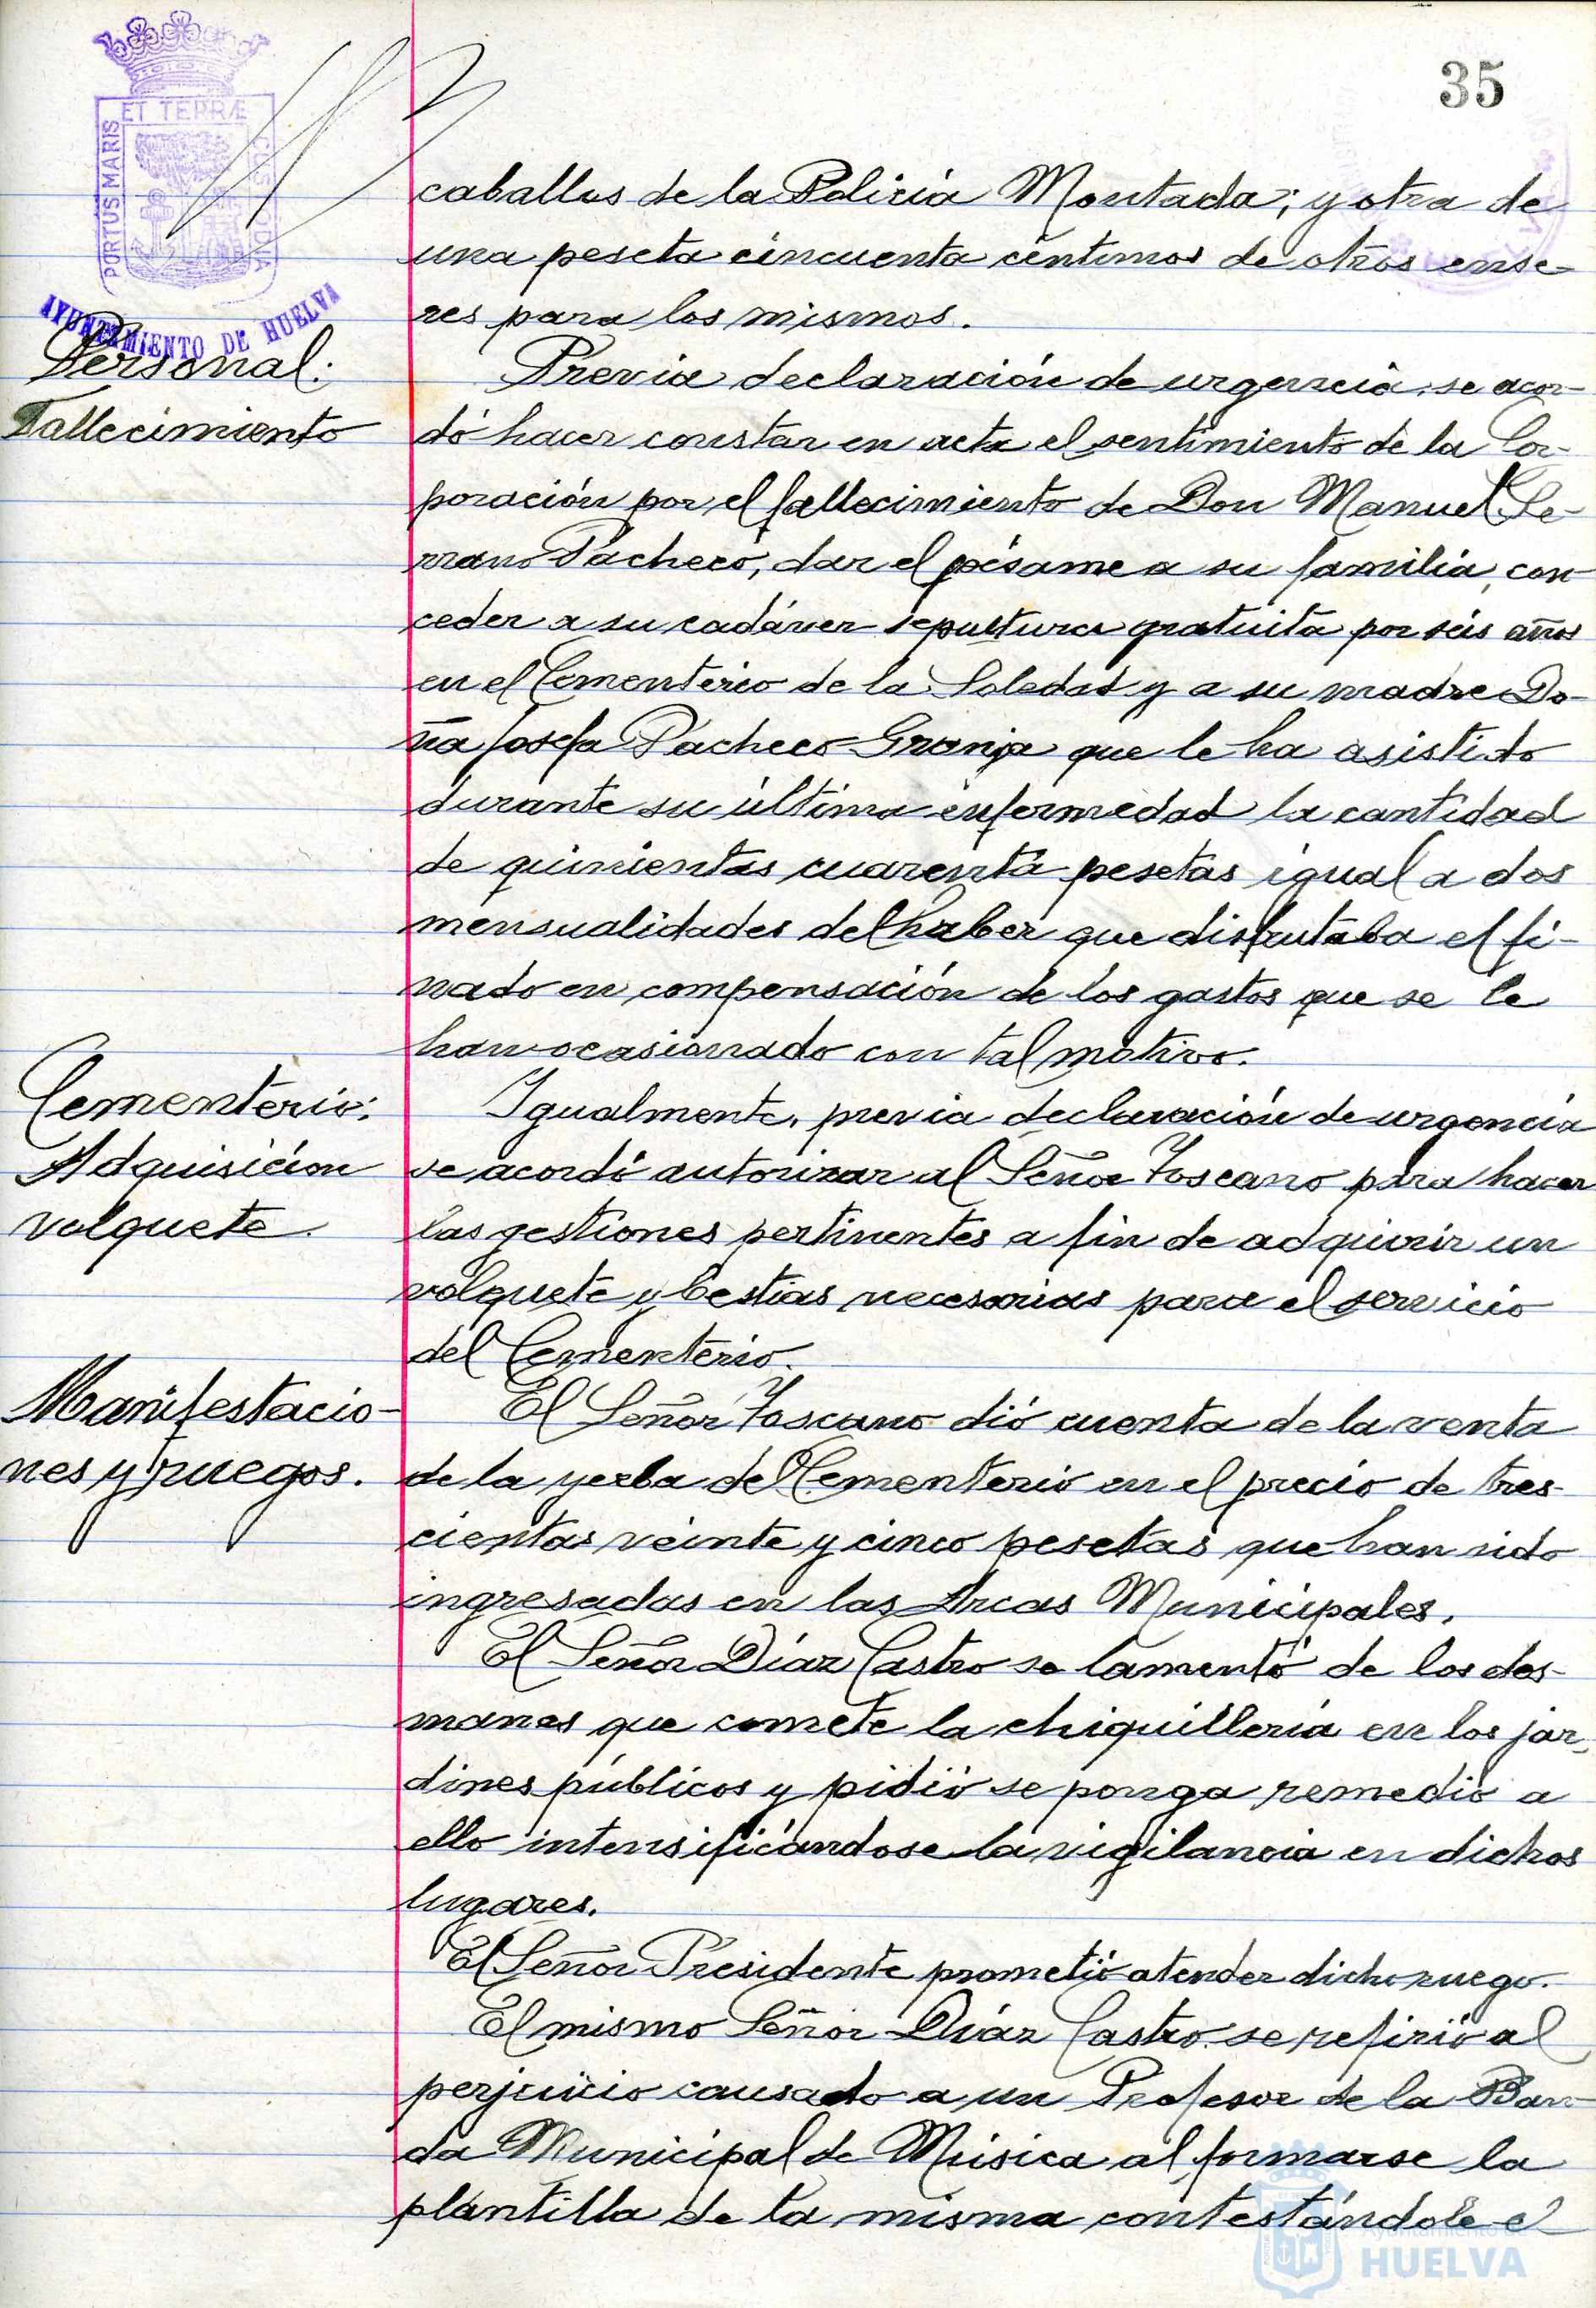 35
ET TERRÆ
PORTUS MARIS
CUSTODIA
AYUNTAMIENTO DE HUELVA
caballos de la Policia Montada; y otra de
una peseta cincuenta centimos de otros ense-
res para los mismos.
Personal:
Fallecimiento
Previa declaración de urgencia se acor-
dó hacer constar en acta el sentimiento de la Cor-
poración por el fallecimiento de Don Manuel Se-
rrano Pacheco, dar el pésame a su familia, con-
ceder a su cadáver sepultura gratuita por seis años
en el Cementerio de la Soledad y a su madre Do-
ña Josefa Pacheco Granja que le ha asistido
durante su última enfermedad la cantidad
de quinientas cuarenta pesetas igual a dos
mensualidades del haber que disfrutaba el fi-
nado en compensación de los gastos que se le
han ocasionado con tal motivo.
Cementerio:
Adquisición
volquete.
Igualmente, previa declaración de urgencia
se acordó autorizar al Señor Toscano para hacer
las gestiones pertinentes a fin de adquirir un
volquete y bestias necesarias para el servicio
del Cementerio.
Manifestacio-
nes y ruegos.
El Señor Toscano dió cuenta de la venta
de la yerba del Cementerio en el precio de tres-
cientas veinte y cinco pesetas que han sido
ingresadas en las Arcas Municipales.
El Señor Díaz Castro se lamentó de los des-
manes que comete la chiquillería en los jar-
dines públicos y pidió se ponga remedio a
ello intensificándose la vigilancia en dichos
lugares.
El Señor Presidente prometió atender dicho ruego.
El mismo Señor Díaz Castro se refirió al
perjuicio causado a un Profesor de la Ban-
da Municipal de Música al formarse la
plantilla de la misma contestándole el
HUELVA